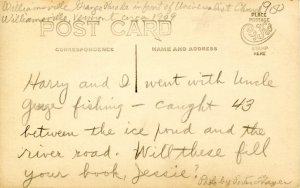 Williamsville Grange Parade in front of Universalist Church
Williamsville, Vermont circa 1909
1910
POST CARD
PLACE
POSTAGE
STAMP
HERE
CORRESPONDENCE
NAME AND ADDRESS
Harry and I went with Uncle
fishing - caught 43
between the ice pond and the
river road. Will these fill
your book, Jessie.
Photo by Porter Thayer